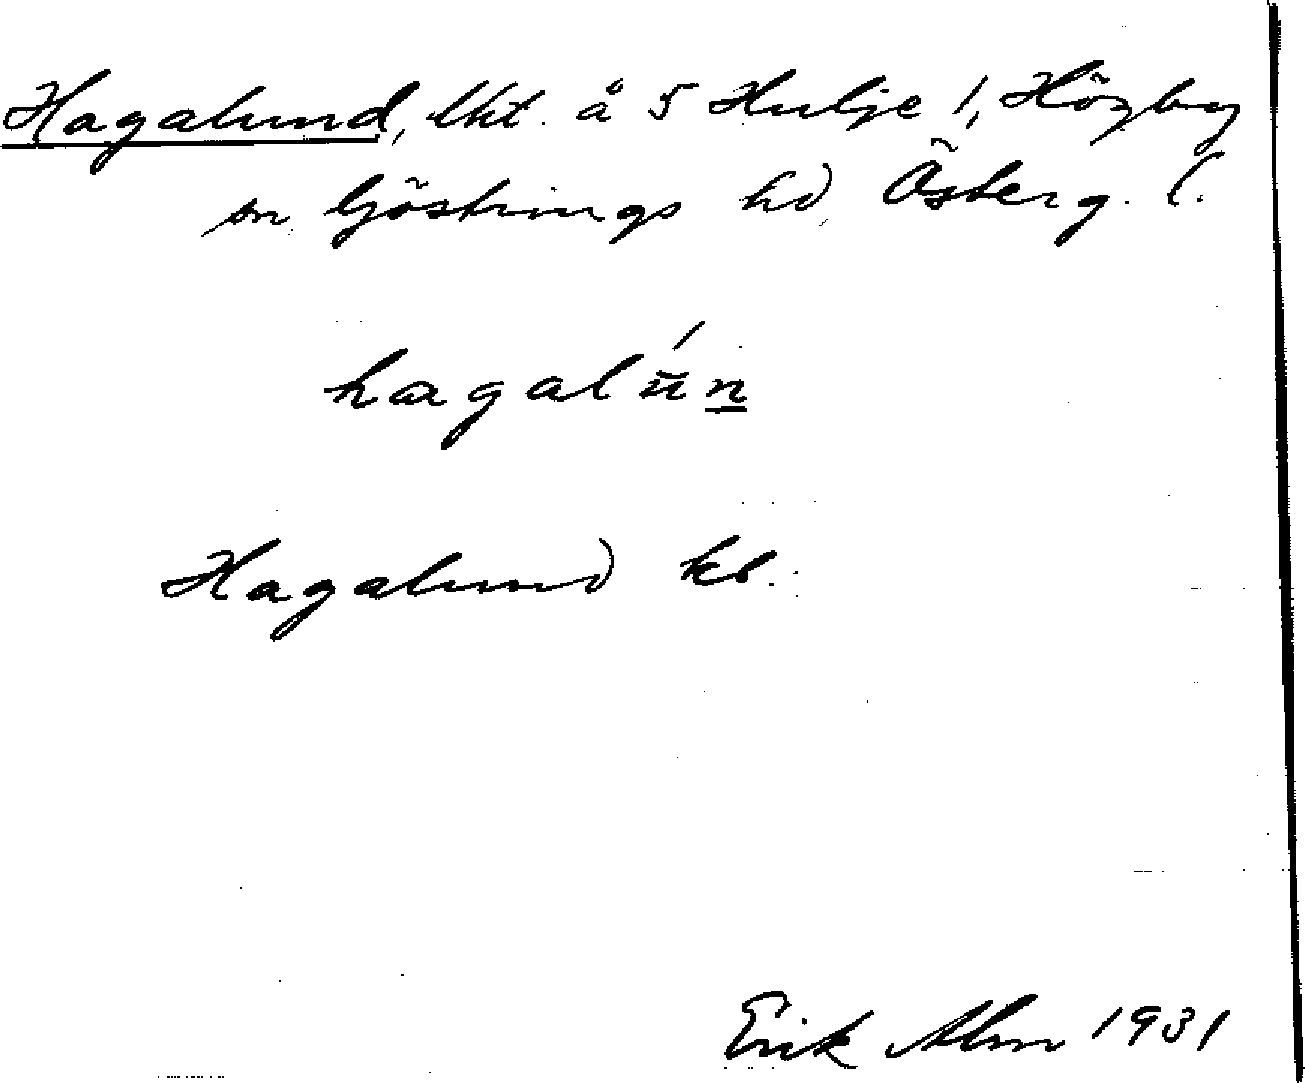 Hagalund, lht. å 5 Hulje 1, Högby
sn. Göstrings hd, Österg. l.
hagalún
Hagalund kb.
Erik Alm 1931